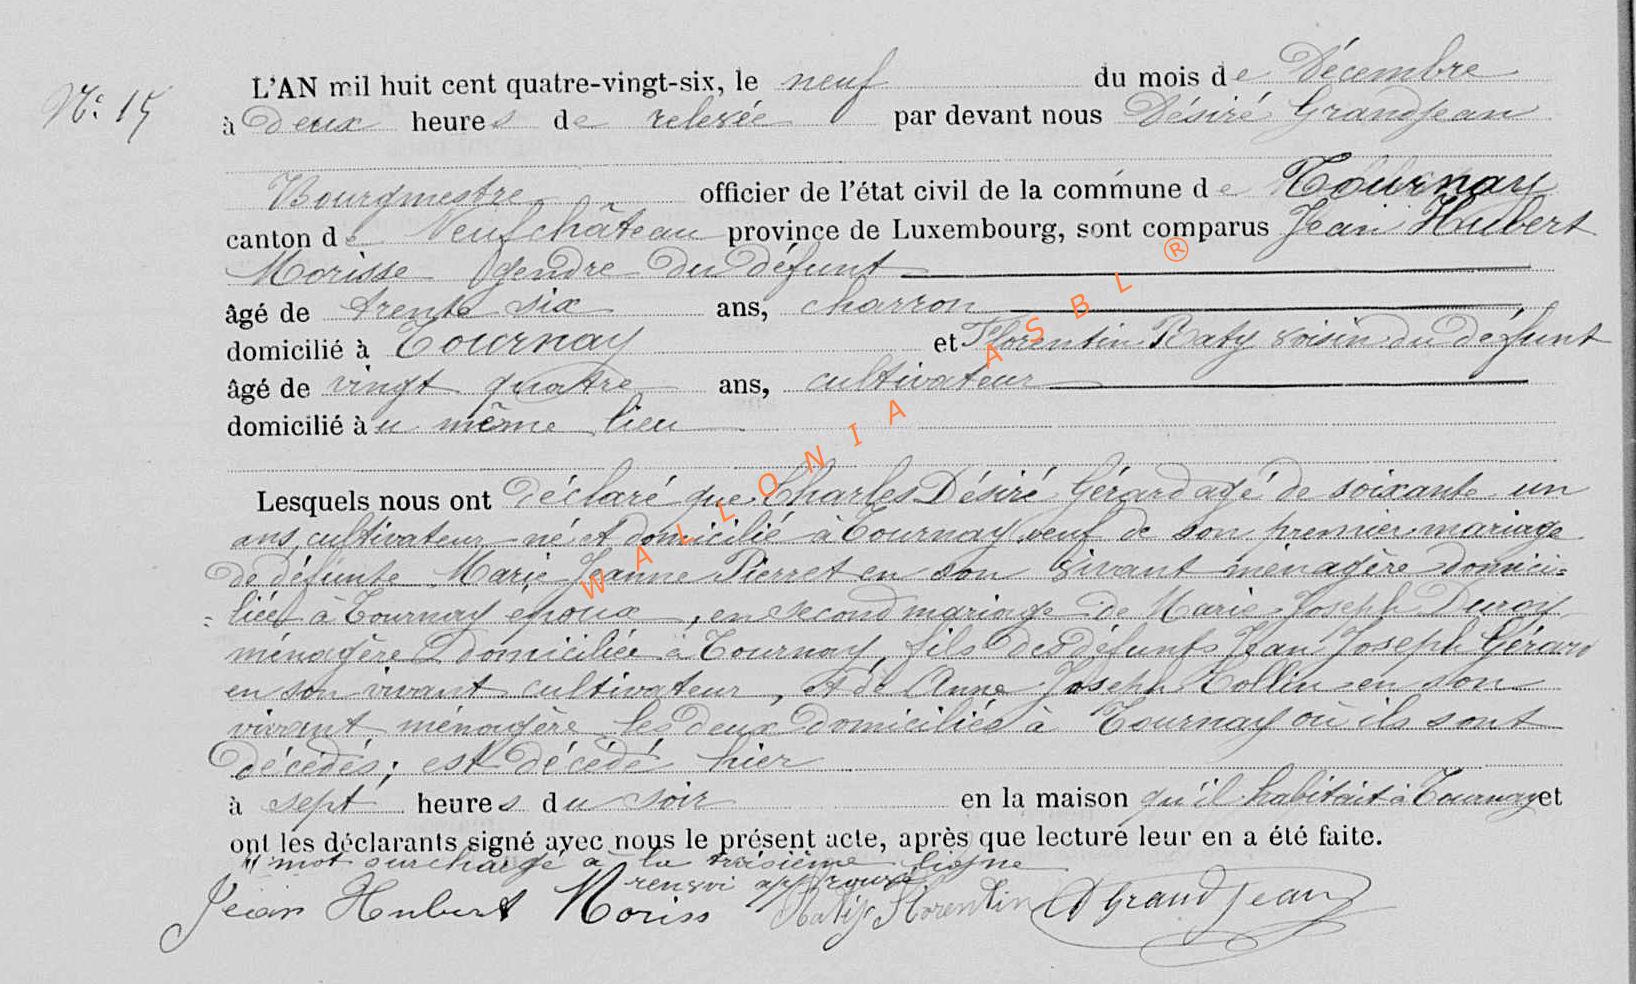 N° 15
L'AN mil huit cent quatre-vingt-six, le neuf du mois de Décembre
à deux heures de relevée par devant nous Désiré Grandjean
Bourgmestre officier de l'état civil de la commune de Tournay
canton de Neufchâteau province de Luxembourg, sont comparus Jean Hubert
Morisse gendre du défunt
âgé de trente six ans, charron
domicilié à Tournay et Florentin Raty voisin du défunt
âgé de vingt quatre ans, cultivateur
domicilié au même lieu
Lesquels nous ont déclaré que Charles Désiré Gérard agé de soixante un
ans, cultivateur né et domicilié à Tournay veuf de son premier mariage
de défunte Marie Jeanne Pierret en son vivant ménagère domici=
=liée à Tournay epoux, en second mariage de Marie Joseph Duroy
ménagère domiciliée à Tournay, fils des défunts Jean Joseph Gérard
en son vivant cultivateur, et de Anne Joseph Collin en son
vivant ménagère les deux domiciliés à Tournay où ils sont
décédés; est décédé hier
à sept heures du soir en la maison qu'il habitait à Tournay et
ont les déclarants signé avec nous le présent acte, après que lecture leur en a été faite.
mot surchargé à la troisième ligne
renvoi approuvé
Jean Hubert Moriss Raty Florentin D Grandjean
WALLONIA ASBL ®